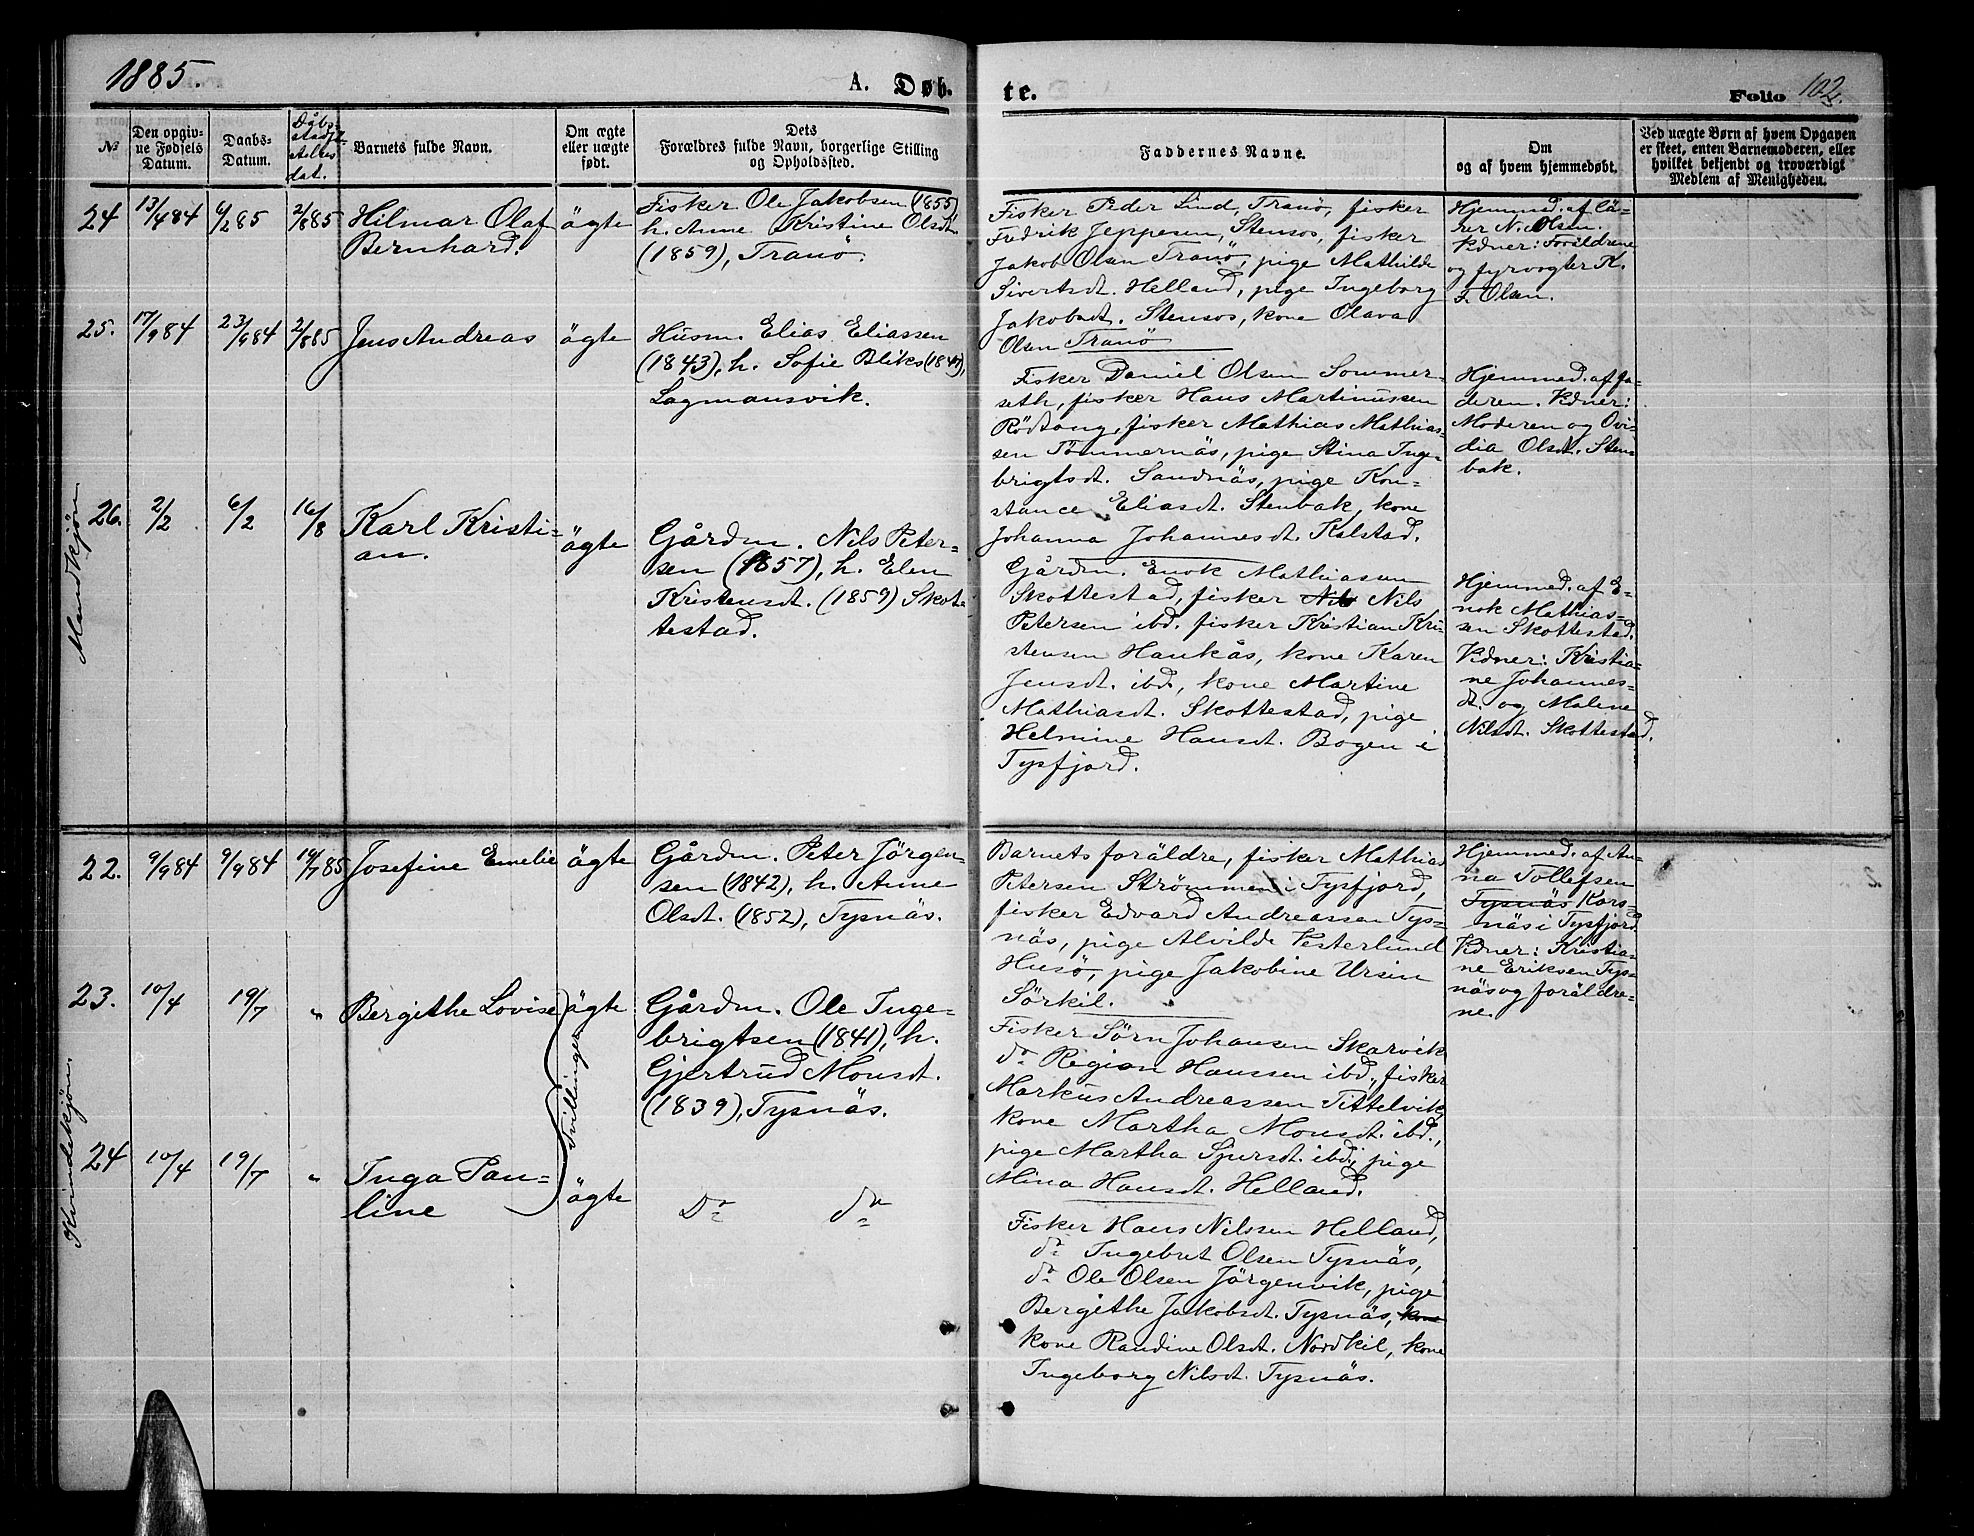 1885.
A. Døb-
te.
Folio 102.
№
Den opgiv-
ne Fødsels
Datum.
Daabs-
Datum.
Dåbs-
stadf.
Attes
dat.
Barnets fulde Navn.
Om ægte
eller uægte
født.
Dets
Forældres fulde Navn, borgerlige Stilling
og Opholdssted.
Faddernes Navne.
Om
og af hvem hjemmedøbt.
Ved uægte Børn af hvem Opgaven
er skeet, enten Barnemoderen, eller
hvilket bekjendt og troværdigt
Medlem af Menigheden.
Mandkjøn
24 13/4 84 6/2 85 2/8 85
Hilmar Olaf
Bernhard.
ägte
Fisker Ole Jakobsen (1855)
h. Anne Kristine Olsdt
(1859), Tranö.
Fisker Peder Lind, Tranö, fisker
Fredrik Jeppesen, Stensos, fisker
Jakob Olsen Tranö, pige Mathilde
Sivertsdt. Helland, pige Ingeborg
Jakobsdt. Stensos, kone Olava
Olsen Tranö
Hjemmed. af Lä-
rer N. Olsen.
Vdner: Foräldrene
og fyrvogter K.
F. Olsen.
25. 17/9 84 23/9 84 2/8 85
Jens Andreas
ägte
Husm. Elias Eliassen
(1843), h. Sofie Bliks (1847),
Lagmansvik.
Fisker Daniel Olsen Sommer-
seth, fisker Hans Martinussen
Rödtang, fisker Mathias Mathias-
sen Tömmernäs, pige Stina Inge-
brigtsdt. Sandnäs, pige Kon-
stance Eliasdt. Stenbak, kone
Johanna Johannesdt. Kalstad.
Hjemmed. af fa-
deren. Vdner:
Moderen og Ovi-
dia Olsdt. Sten-
bak.
26. 2/2 6/2 16/8
Karl Kristi-
an.
ägte
Gårdm. Nils Peter-
sen (1857), h. Elen
Kristensdt. (1859) Skot-
testad.
Gårdm. Enok Mathiassen
Skottestad, fisker Nils Nils
Petersen ibd. fisker Kristian Kri-
stensen Haukås, kone Karen
Jensdt. ibd., kone Martine
Mathiasdt. Skottestad, pige
Helmine Hansdt. Bogen i
Tysfjord.
Hjemmed. af E-
nok Mathias-
sen Skottestad.
Vdner: Kristia-
ne Johannes-
dt. og Malene
Nilsdt. Skottestad.
Kvindekjön.
22. 9/9 84 9/9 84 19/7 85
Josefine Emelie
ägte
Gårdm. Peter Jörgen-
sen (1842), h. Anne
Olsdt. (1852), Tysnäs.
Barnets foräldre, fisker Mathias
Petersen Strömmen i Tysfjord,
fisker Edvard Andreassen Tys-
näs, pige Alvilde Vesterlund
Husö, pige Jakobine Ursin
Sörkil.
Hjemmed. af An-
na Tollefsen
Tysnäs Kors-
näs i Tysfjord
Vdner: Kristia-
ne Eriksen Tys-
näs og foräldre-
ne.
23. 10/4 19/7 "
Bergithe Lovise
ägte
Tvillinger
Gårdm. Ole Inge-
brigtsen (1841), h.
Gjertrud Monsdt.
(1839), Tysnäs.
Fisker Sörn Johansen Skarvik
do Region Hanssen ibd., fisker
Markus Andreassen Tittelvik,
kone Martha Monsdt. ibd.,
pige Martha Sjursdt. ibd., pige
Mina Hansdt. Helland.
24 10/4 19/7 "
Inga Pau-
line
ägte
Do do
Fisker Hans Nilssen Helland,
do Ingebret Olsen Tysnäs,
do Ole Olsen Jörgenvik, pige
Bergithe Jakobsdt. Tysnäs, kone
kone Randine Olsdt. Nordkil, kone
Ingeborg Nilsdt. Tysnäs.